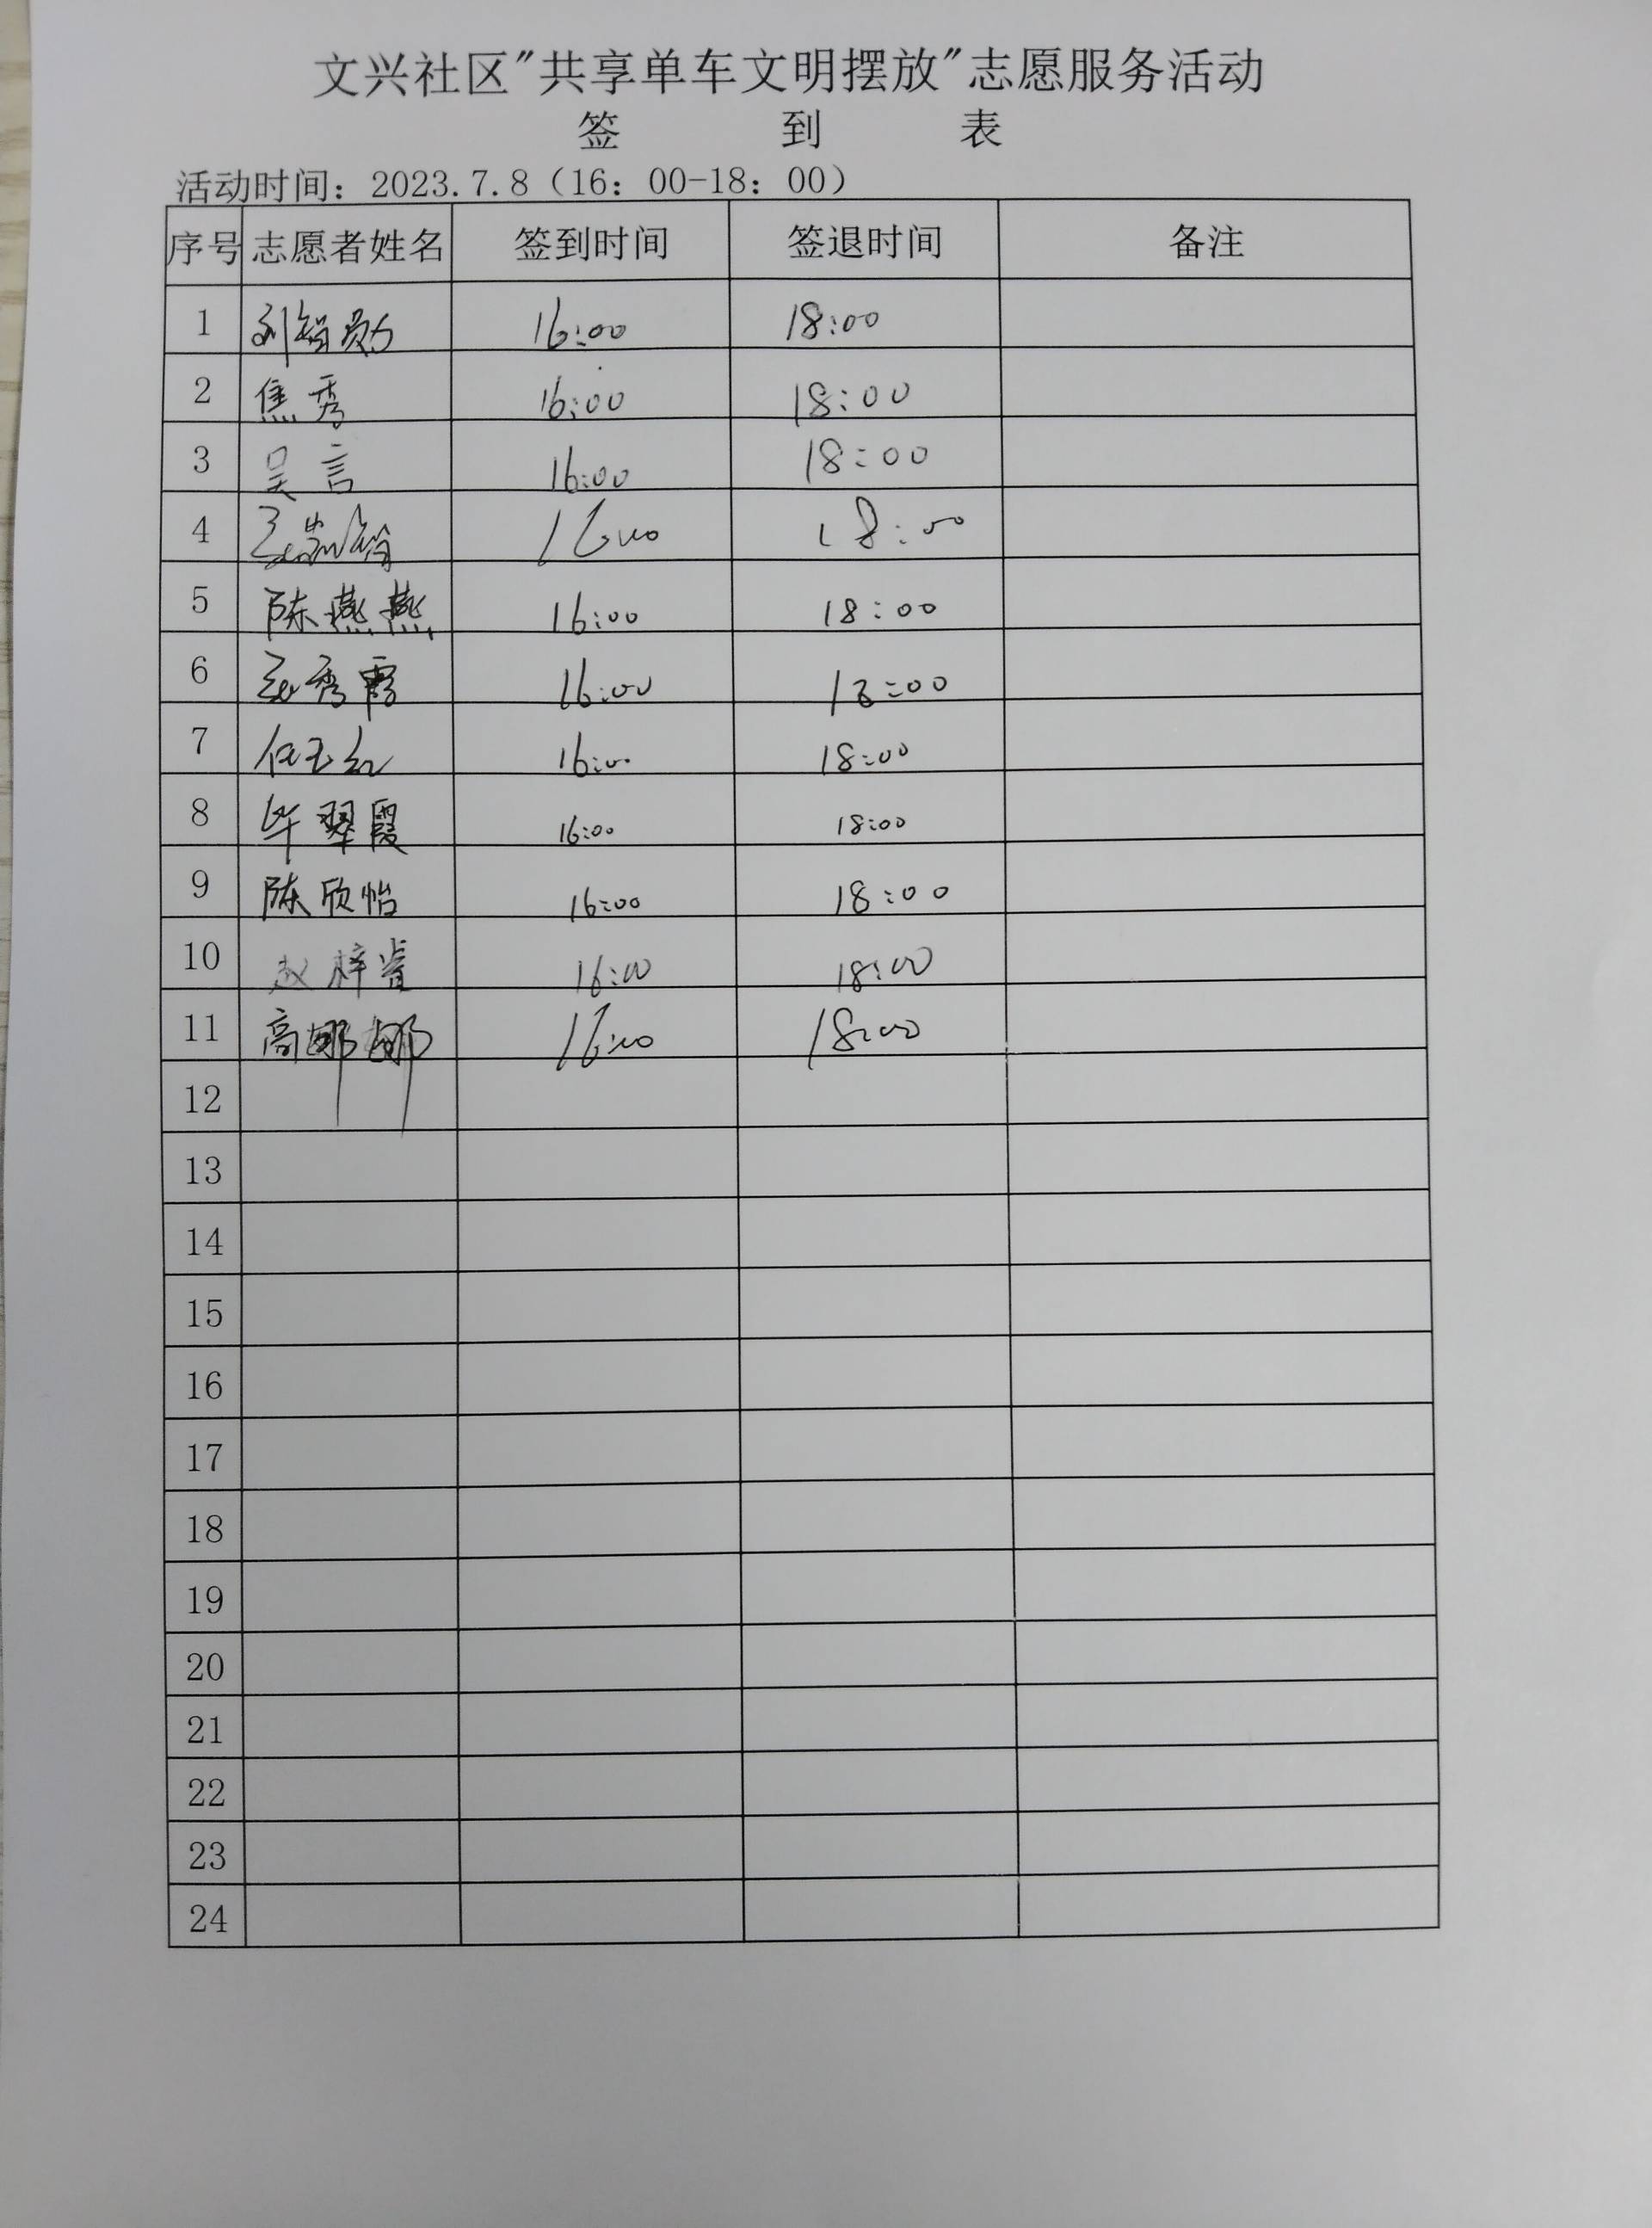 文兴社区"共享单车文明摆放"志愿服务活动
签 到 表
活动时间：2023.7.8（16：00-18：00）
序号 志愿者姓名 签到时间 签退时间 备注
1 刘智勋 16:00 18:00
2 焦秀 16:00 18:00
3 吴言 16:00 18:00
4 16:00 18:00
5 陈燕燕 16:00 18:00
6 秀霞 16:00 18:00
7 任玉红 16:00 18:00
8 毕翠霞 16:00 18:00
9 陈欣怡 16:00 18:00
10 赵梓 16:00 18:00
11 高娜娜 16:00 18:00
12
13
14
15
16
17
18
19
20
21
22
23
24